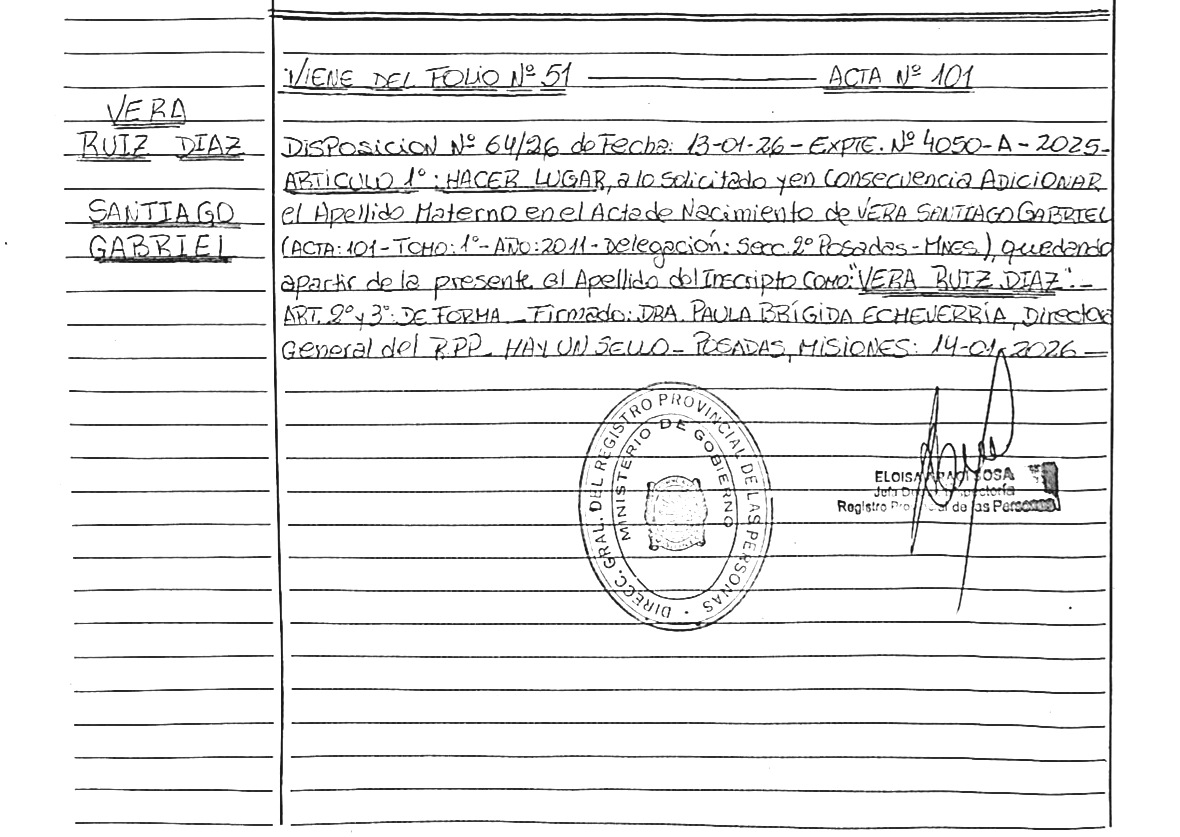 VIENE DEL FOLIO Nº 51 ACTA Nº 101
VERA
RUIZ DIAZ
SANTIAGO
GABRIEL
DISPOSICION Nº 64/26 de Fecha: 13-01-26 - EXPTE. Nº 4050-A - 2025-
ARTICULO 1º: HACER LUGAR, a lo solicitado y en Consecuencia ADICIONAR
el Apellido Materno en el Acta de Nacimiento de VERA SANTIAGO GABRIEL
(ACTA: 101 - TOMO: 1º - AÑO: 2011 - Delegación: Secc. 2º Posadas - MNES.), quedando
a partir de la presente el Apellido del Inscripto COMO: "VERA RUIZ DIAZ".-
ART. 2º y 3º: DE FORMA - Firmado: DRA. PAULA BRÍGIDA ECHEVERRÍA, Director
General del R.P.P. HAY UN SELLO - POSADAS, MISIONES: 14-01-2026 -
DIRECC. GRAL. DEL REGISTRO PROVINCIAL DE LAS PERSONAS
MINISTERIO DE GOBIERNO
ELOISA SOSA
Jefa
Registro de las Personas